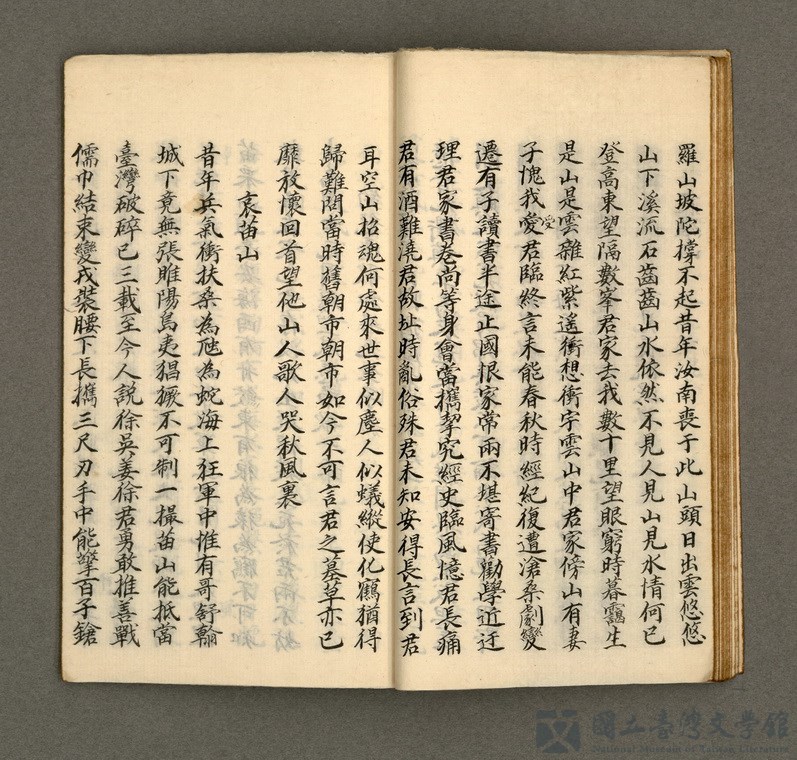 羅山坡陀撐不起昔年汝南喪于此山頭日出雲悠悠
山下溪流石齒齒山水依然不見人見山見水情何已
登高東望隔數峯君家去我數十里望眼窮時暮靄生
是山是雲雜紅紫遙衝想衝宇雲山中君家傍山有妻
子愧我愛受君臨終言未能春秋時經紀復遭滄桑劇變
遷有子讀書半途止國恨家常兩不堪寄書勸學近迂
理君家書卷尚等身會當攜挈究經史臨風憶君長痛
君有酒難澆君故址時亂俗殊君未知安得長言到君
耳空山招魂何處來世事似塵人似蟻縱使化鶴猶得
歸難問當時舊朝市朝市如今不可言君之墓草亦已
靡放懷回首望他山人歌人哭秋風裏
哀苗山
昔年兵氣衝扶桑為虺為蛇海上狂軍中惟有哥舒翰
城下竟無張睢陽島夷猖獗不可制一撮苗山能抵當
臺灣破碎已三載至今人說徐吳姜徐君勇敢推善戰
儒巾結束變戎裝腰下長攜三尺刃手中能擎百子鎗
國立臺灣文學館
National Museum of Taiwan Literature